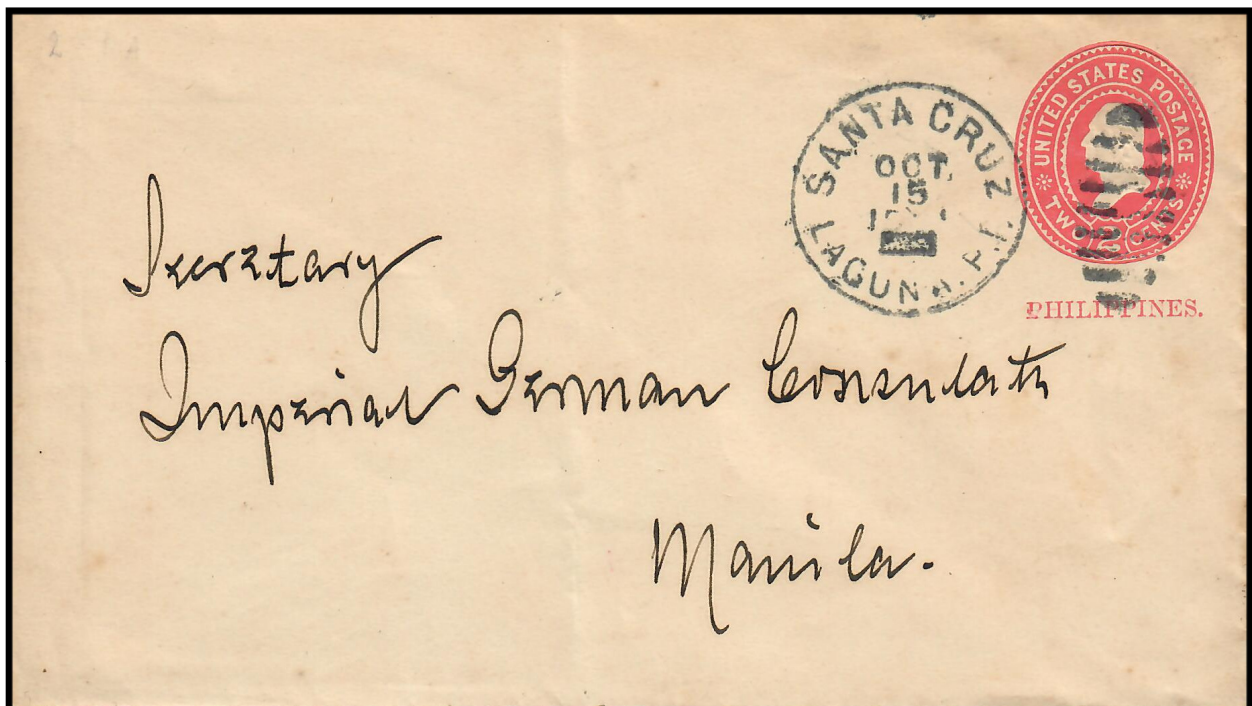 SANTA CRUZ
OCT.
15
LAGUNA. P.I.
UNITED STATES POSTAGE
TWO 2 CENTS
PHILIPPINES.
Secretary
Imperial German Consulate
Manila.